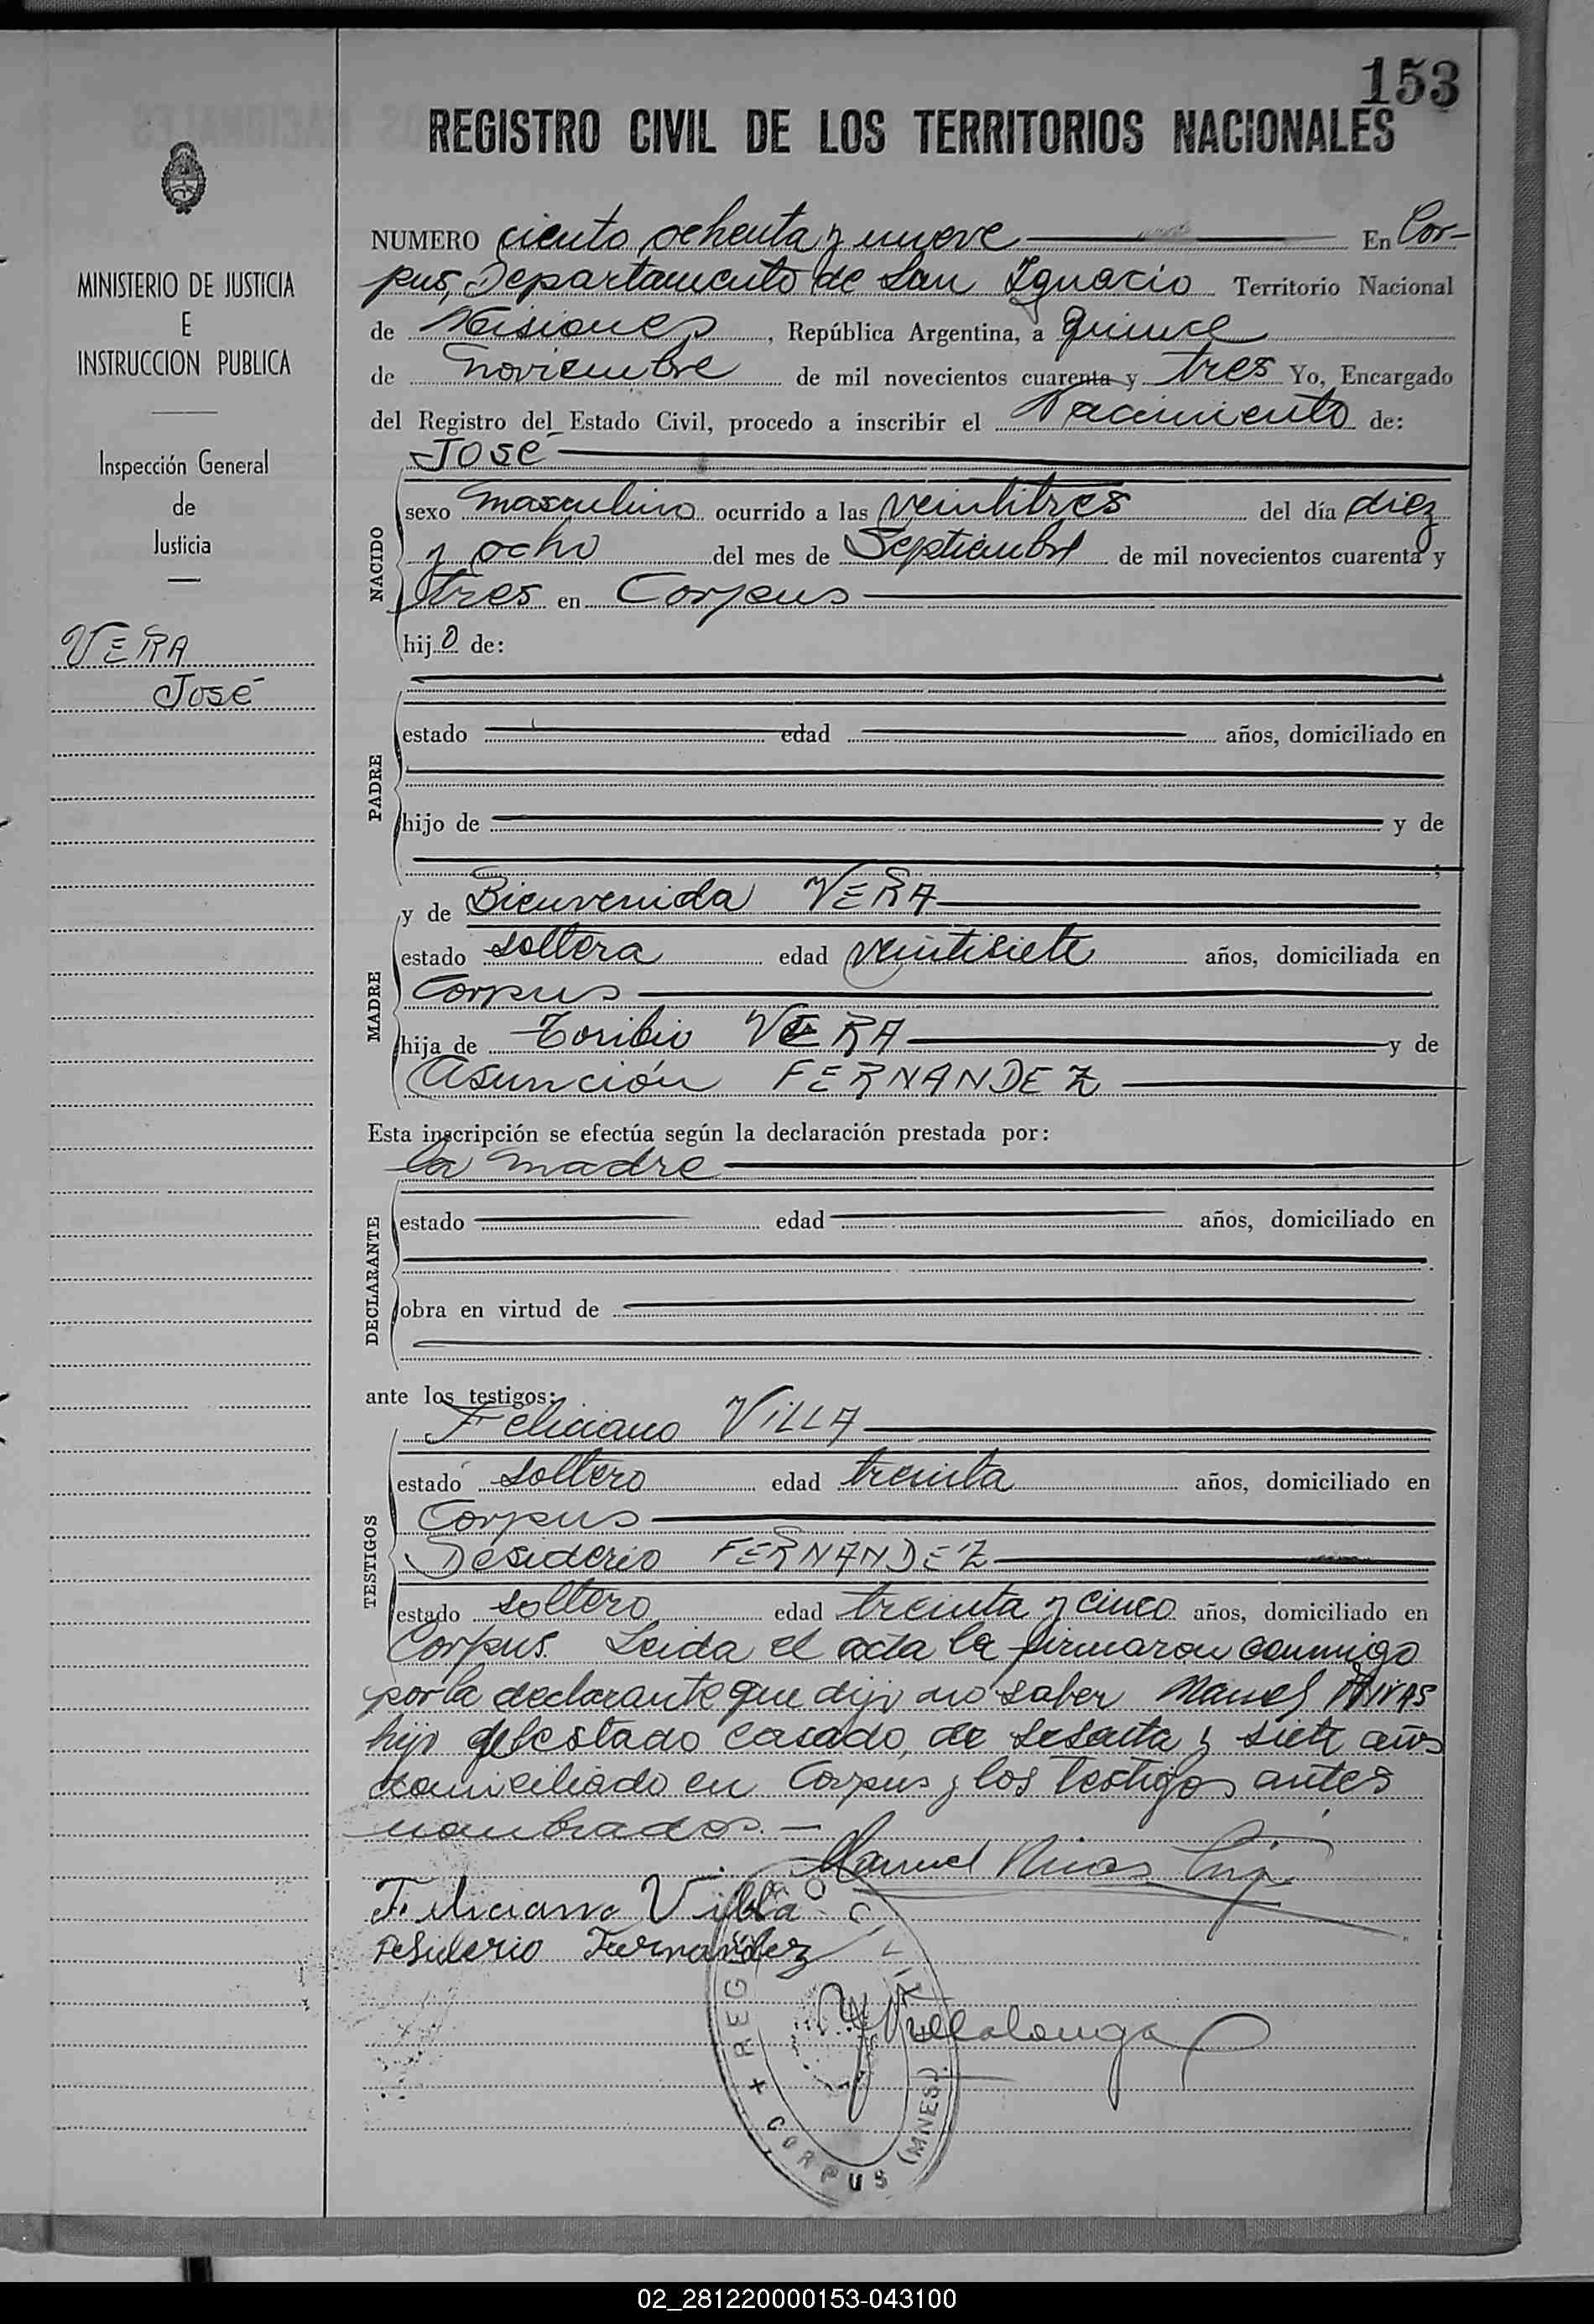 153
REGISTRO CIVIL DE LOS TERRITORIOS NACIONALES
MINISTERIO DE JUSTICIA
E
INSTRUCCION PUBLICA
Inspección General
de
Justicia
VERA
José
NUMERO ciento ochenta y nueve En Cor-
pus, Departamento de San Ignacio Territorio Nacional
de Misiones, República Argentina, a quince
de noviembre de mil novecientos cuarenta y tres Yo, Encargado
del Registro del Estado Civil, procedo a inscribir el Nacimiento de:
José
NACIDO
sexo masculino ocurrido a las veintitres del día diez
y ocho del mes de Septiembre de mil novecientos cuarenta y
tres en Corpus
hijo de:
PADRE
estado edad años, domiciliado en
hijo de y de
;
MADRE
y de Bienvenida VERA
estado soltera edad veintisiete años, domiciliada en
Corpus
hija de Toribio VERA y de
Asunción FERNANDEZ
Esta inscripción se efectúa según la declaración prestada por:
la madre
DECLARANTE
estado edad años, domiciliado en
obra en virtud de
ante los testigos:
TESTIGOS
Feliciano VILLA
estado soltero edad treinta años, domiciliado en
Corpus
Desiderio FERNANDEZ
estado soltero edad treinta y cinco años, domiciliado en
Corpus. Leida el acta la firmaron conmigo
por la declarante que dijo no saber Manuel
hijo de estado casado, de sesenta y siete años
domiciliado en Corpus y los testigos antes
nombrados.—
Manuel
Feliciano Villa
Desiderio Fernandez
Villalonga
REG CIVIL
CORPUS (MNES.)
02_281220000153-043100